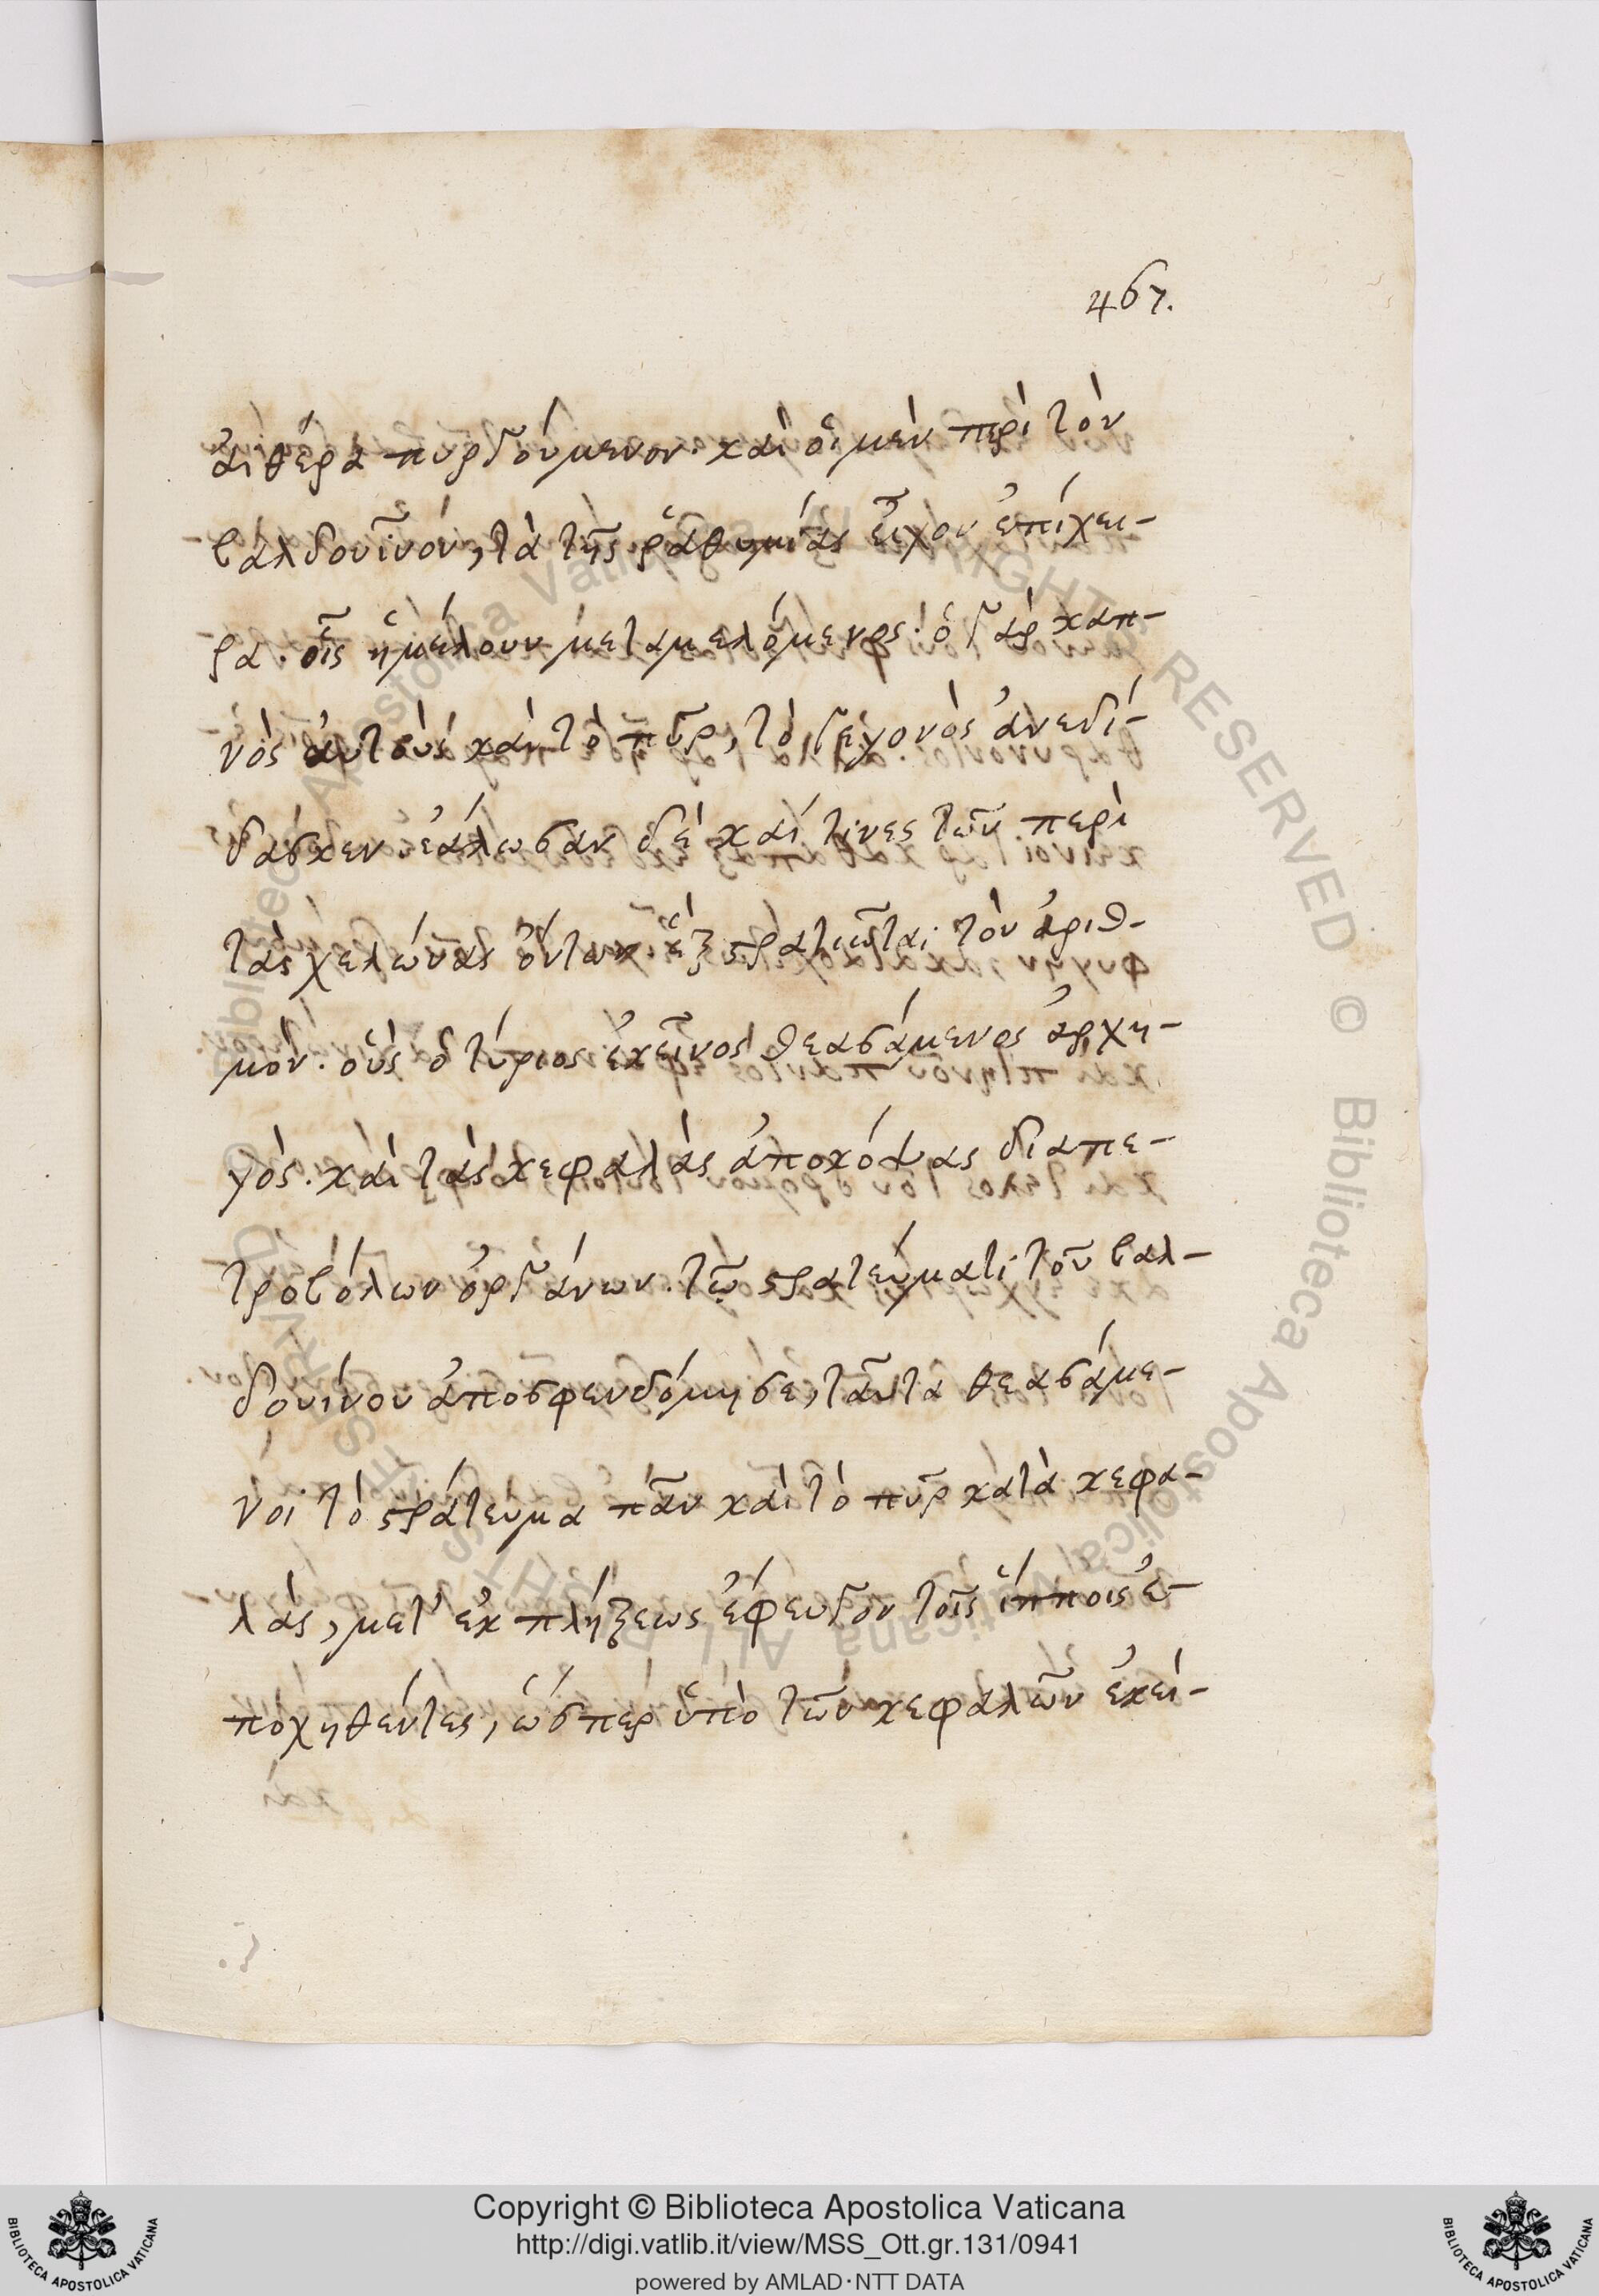 467.
αἰθέρα πυργούμενον. καὶ οἱ μὲν περὶ τὸν
βαλδουῖνον, τὰ τῆς ῥαθυμίας εἶχον ἐπίχει-
ρα. οἷς ἠμέλουν μεταμελόμενος. ὁ γὰρ καπ-
νὸς αὐτοὺς καὶ τὸ πῦρ, τὸ γεγονὸς ἀνεδί-
δασκεν. ἑάλωσαν δὲ καί τινες τῶν περὶ
τὰς χελώνας ὄντων. ἓξ στρατιῶται τὸν ἀριθ-
μόν. οὓς ὁ τύριος ἐκεῖνος θεασάμενος ἀρχη-
γός. καὶ τὰς κεφαλὰς ἀποκόψας διαπε-
τροβόλων ὀργάνων. τῷ στρατεύματι τοῦ βαλ-
δουίνου ἀποσφενδόμησε, ταῦτα θεασάμε-
νοι τὸ στράτευμα πᾶν καὶ τὸ πῦρ κατὰ κεφα-
λὰς, μετ' ἐκπλήξεως ἔφευγον τοῖς ἵπποις ἐ-
ποχηθέντες, ὥσπερ ὑπὸ τῶν κεφαλῶν ἐκεί-
Copyright © Biblioteca Apostolica Vaticana
http://digi.vatlib.it/view/MSS_Ott.gr.131/0941
powered by AMLAD·NTT DATA
BIBLIOTECA APOSTOLICA VATICANA
BIBLIOTECA APOSTOLICA VATICANA